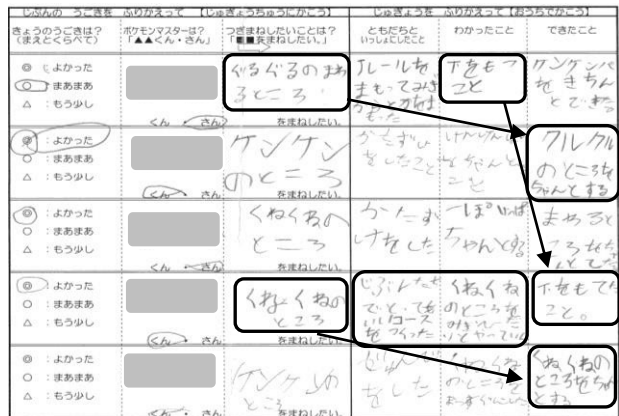 じぶんの うごきを ふりかえって 【じゅぎょうちゅうにかこう】
じゅぎょうを ふりかえって【おうちでかこう】
きょうのうごきは？
（まえとくらべて）
ポケモンマスターは？
「▲▲くん・さん」
つぎまねしたいことは？
「■■をまねしたい。」
ともだちと
いっしょにしたこと
わかったこと
できたこと
◎ : よかった
○ : まあまあ
△ : もう少し
くん ・ さん
ぐるぐるのまわ
るところ
をまねしたい。
ルールを
まもって
下をもつ
こと
ケンケンパ
をきちん
とできた
◎ : よかった
○ : まあまあ
△ : もう少し
くん ・ さん
ケンケン
のところ
をまねしたい。
クルクル
のところを
ちゃんとする
◎ : よかった
○ : まあまあ
△ : もう少し
くん ・ さん
くねくねの
ところ
をまねしたい。
かたづ
けをした
ちゃんとする
まわると
◎ : よかった
○ : まあまあ
△ : もう少し
くん ・ さん
くねくねの
ところ
をまねしたい。
じぶんたち
コース
をつくった
くねくね
のところを
下をもてた
こと。
◎ : よかった
○ : まあまあ
△ : もう少し
くん ・ さん
ケンケンの
ところ
をまねしたい。
をした
くねくね
のところ
くねくねの
ところをちゃん
とする